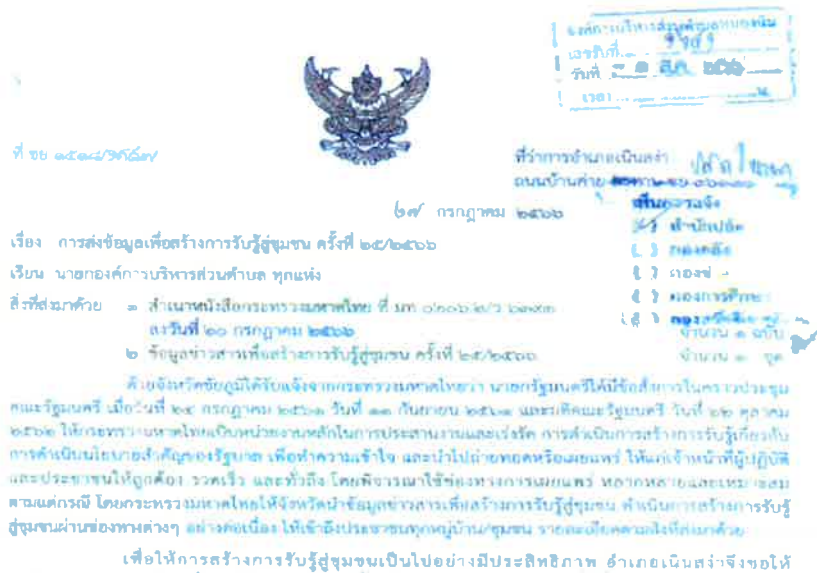 องค์การบริหารส่วนตำบล
เลขรับที่
วันที่ ๑ ส.ค. ๒๕๖๖
เวลา น.
ที่ ชย ๑๕๑๘/
ที่ว่าการอำเภอเนินสง่า
ถนนบ้านค่าย
๒๗ กรกฎาคม ๒๕๖๖
( ) สำนักปลัด
( ) กองคลัง
( ) กองช่าง
( ) กองการศึกษา
เรื่อง การส่งข้อมูลเพื่อสร้างการรับรู้สู่ชุมชน ครั้งที่ ๒๕/๒๕๖๖
เรียน นายกองค์การบริหารส่วนตำบล ทุกแห่ง
สิ่งที่ส่งมาด้วย ๑ สำเนาหนังสือกระทรวงมหาดไทย ที่ มท จำนวน ๑ ฉบับ
ลงวันที่ ๒๐ กรกฎาคม ๒๕๖๖
๒ ข้อมูลข่าวสารเพื่อสร้างการรับรู้สู่ชุมชน ครั้งที่ ๒๕/๒๕๖๖ จำนวน ๑ ชุด
ด้วยจังหวัดชัยภูมิได้รับแจ้งจากกระทรวงมหาดไทยว่า นายกรัฐมนตรีได้มีข้อสั่งการในคราวประชุม
คณะรัฐมนตรี เมื่อวันที่ ๒๔ กรกฎาคม ๒๕๖๑ วันที่ ๑๑ กันยายน ๒๕๖๑ และมติคณะรัฐมนตรี วันที่ ๒๒ ตุลาคม
๒๕๖๒ ให้กระทรวงมหาดไทยเป็นหน่วยงานหลักในการประสานงานและเร่งรัด การดำเนินการสร้างการรับรู้เกี่ยวกับ
การดำเนินนโยบายสำคัญของรัฐบาล เพื่อทำความเข้าใจ และนำไปถ่ายทอดหรือเผยแพร่ ให้แก่เจ้าหน้าที่ผู้ปฏิบัติ
และประชาชนให้ถูกต้อง รวดเร็ว และทั่วถึง โดยพิจารณาใช้ช่องทางการเผยแพร่ หลากหลายและเหมาะสม
ตามแต่กรณี โดยกระทรวงมหาดไทยให้จังหวัดนำข้อมูลข่าวสารเพื่อสร้างการรับรู้สู่ชุมชน ดำเนินการสร้างการรับรู้
สู่ชุมชนผ่านช่องทางต่างๆ อย่างต่อเนื่อง ให้เข้าถึงประชาชนทุกหมู่บ้าน/ชุมชน รายละเอียดตามสิ่งที่ส่งมาด้วย
เพื่อให้การสร้างการรับรู้สู่ชุมชนเป็นไปอย่างมีประสิทธิภาพ อำเภอเนินสง่าจึงขอให้